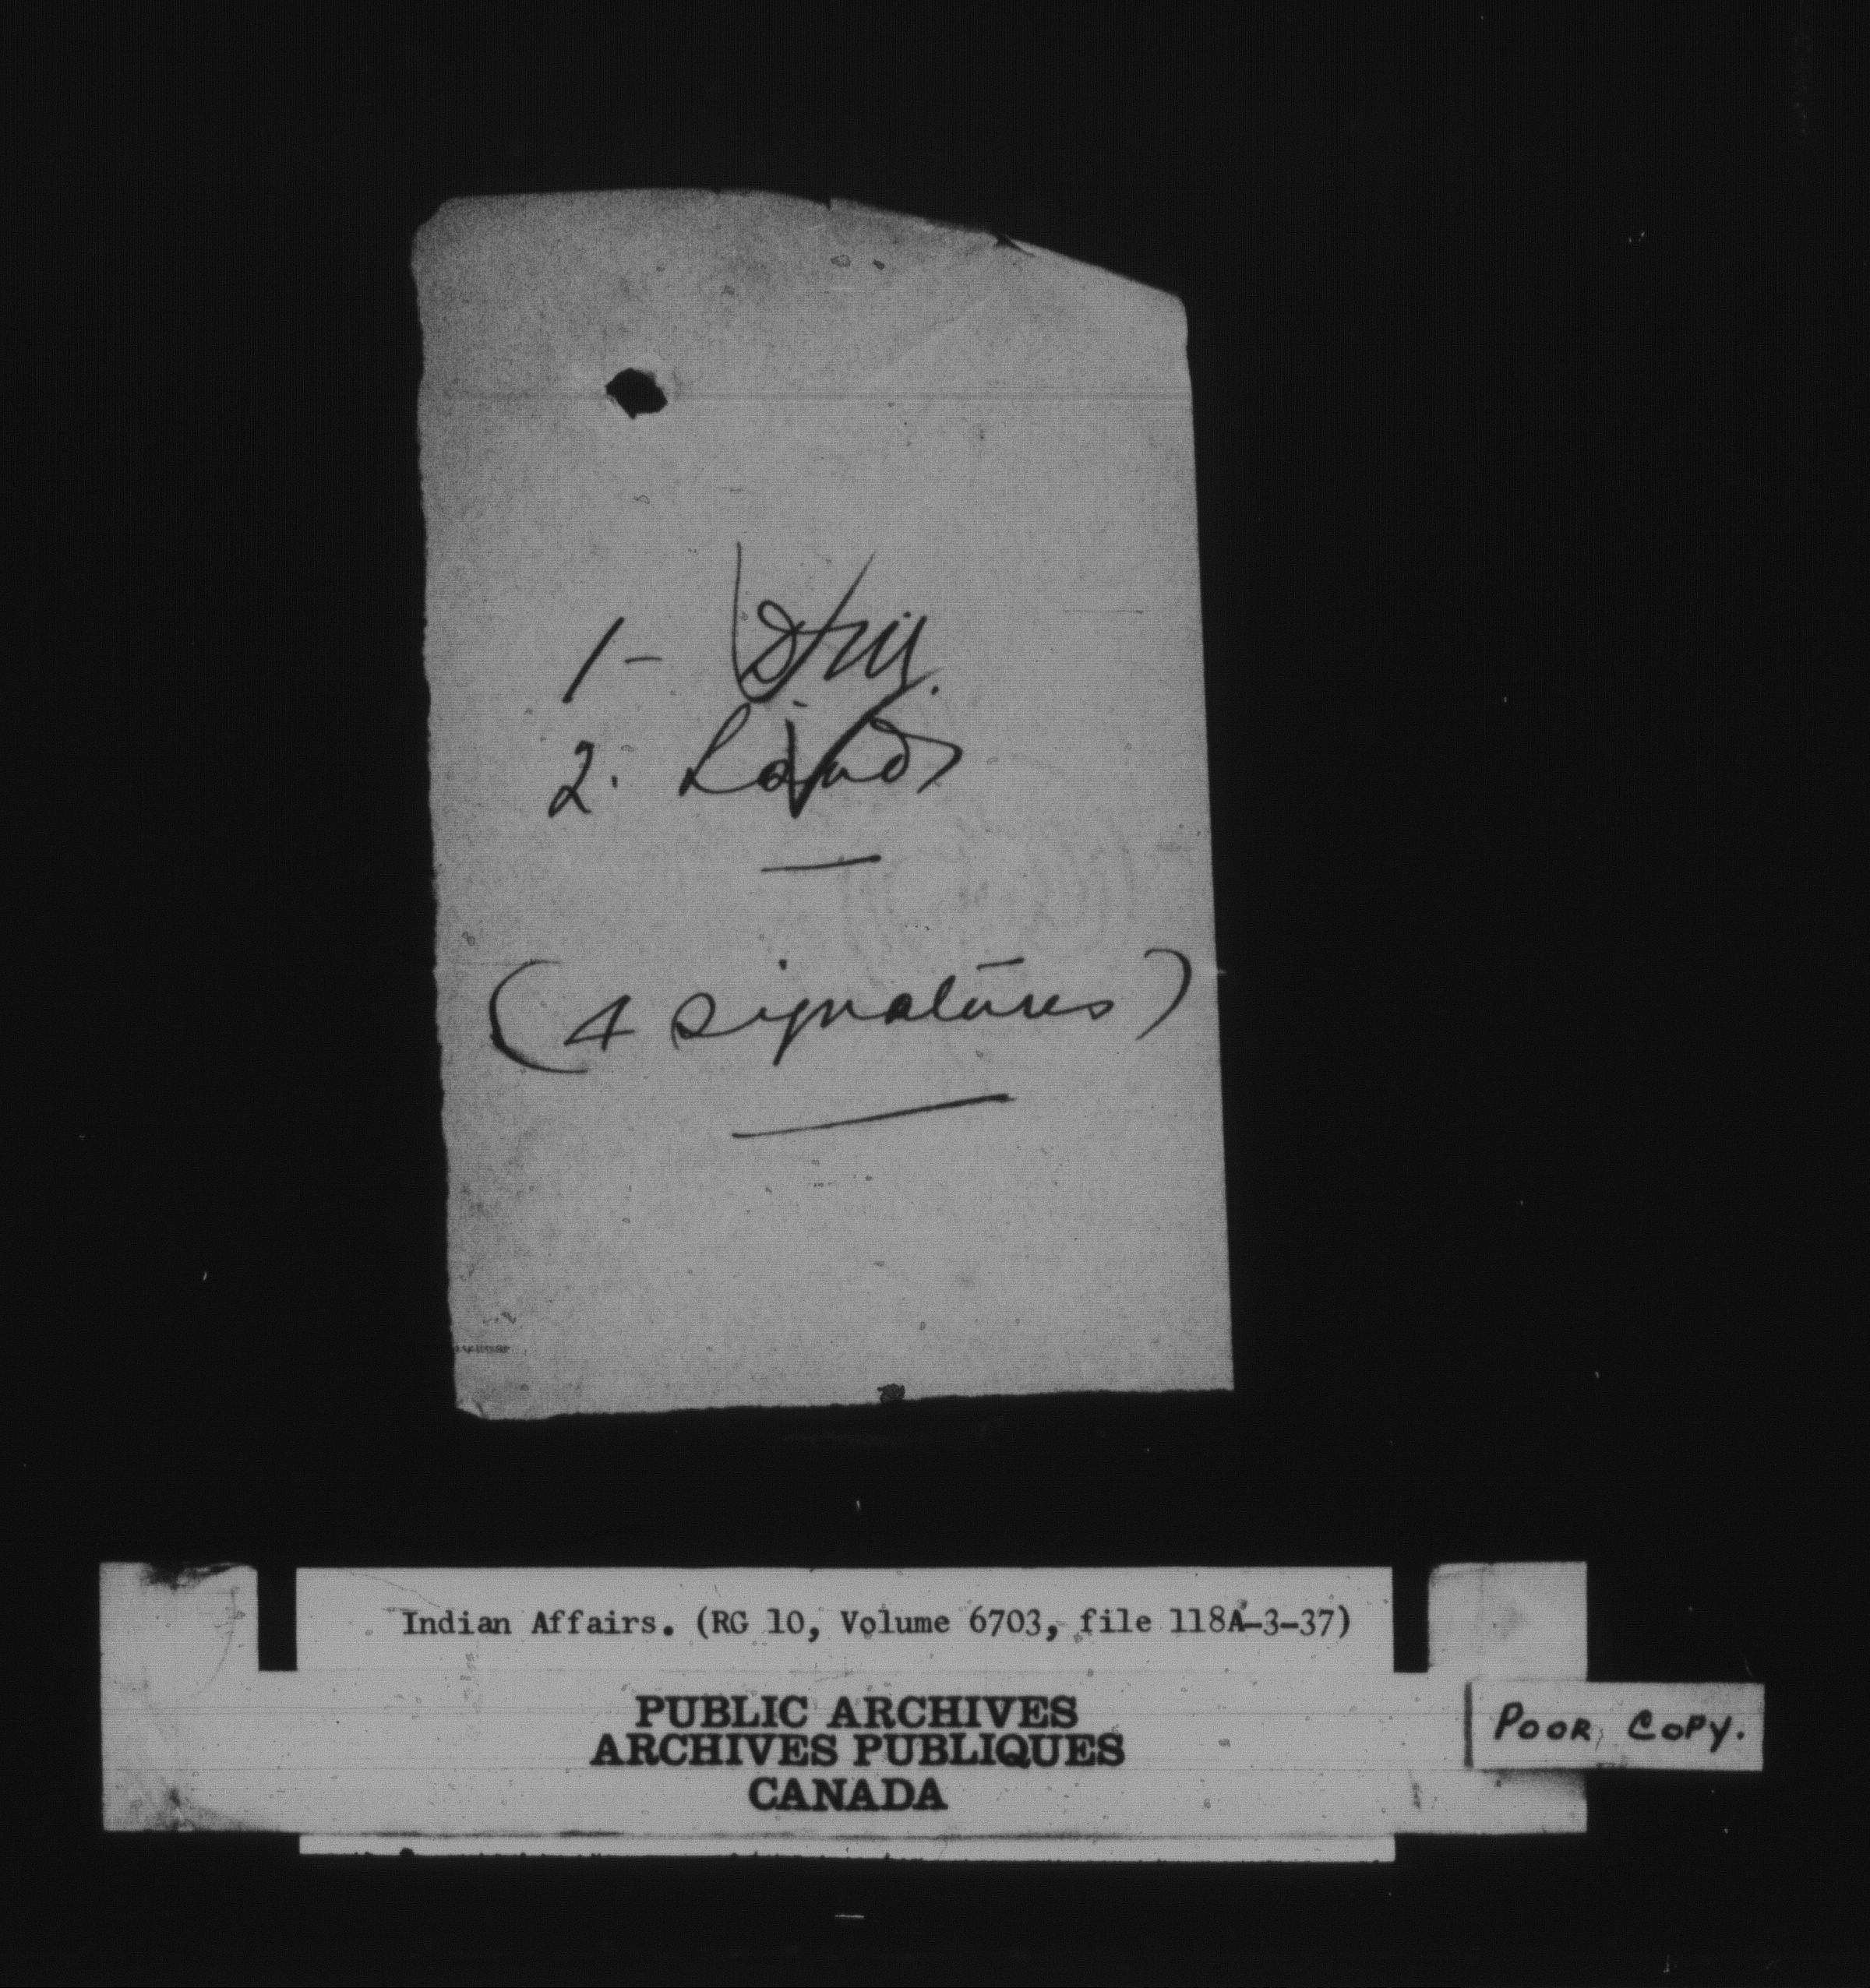 1-
2. Lands
(4 signatures)
Indian Affairs. (RG 10, Volume 6703, file 118A-3-37)
PUBLIC ARCHIVES
ARCHIVES PUBLIQUES
CANADA
POOR COPY.